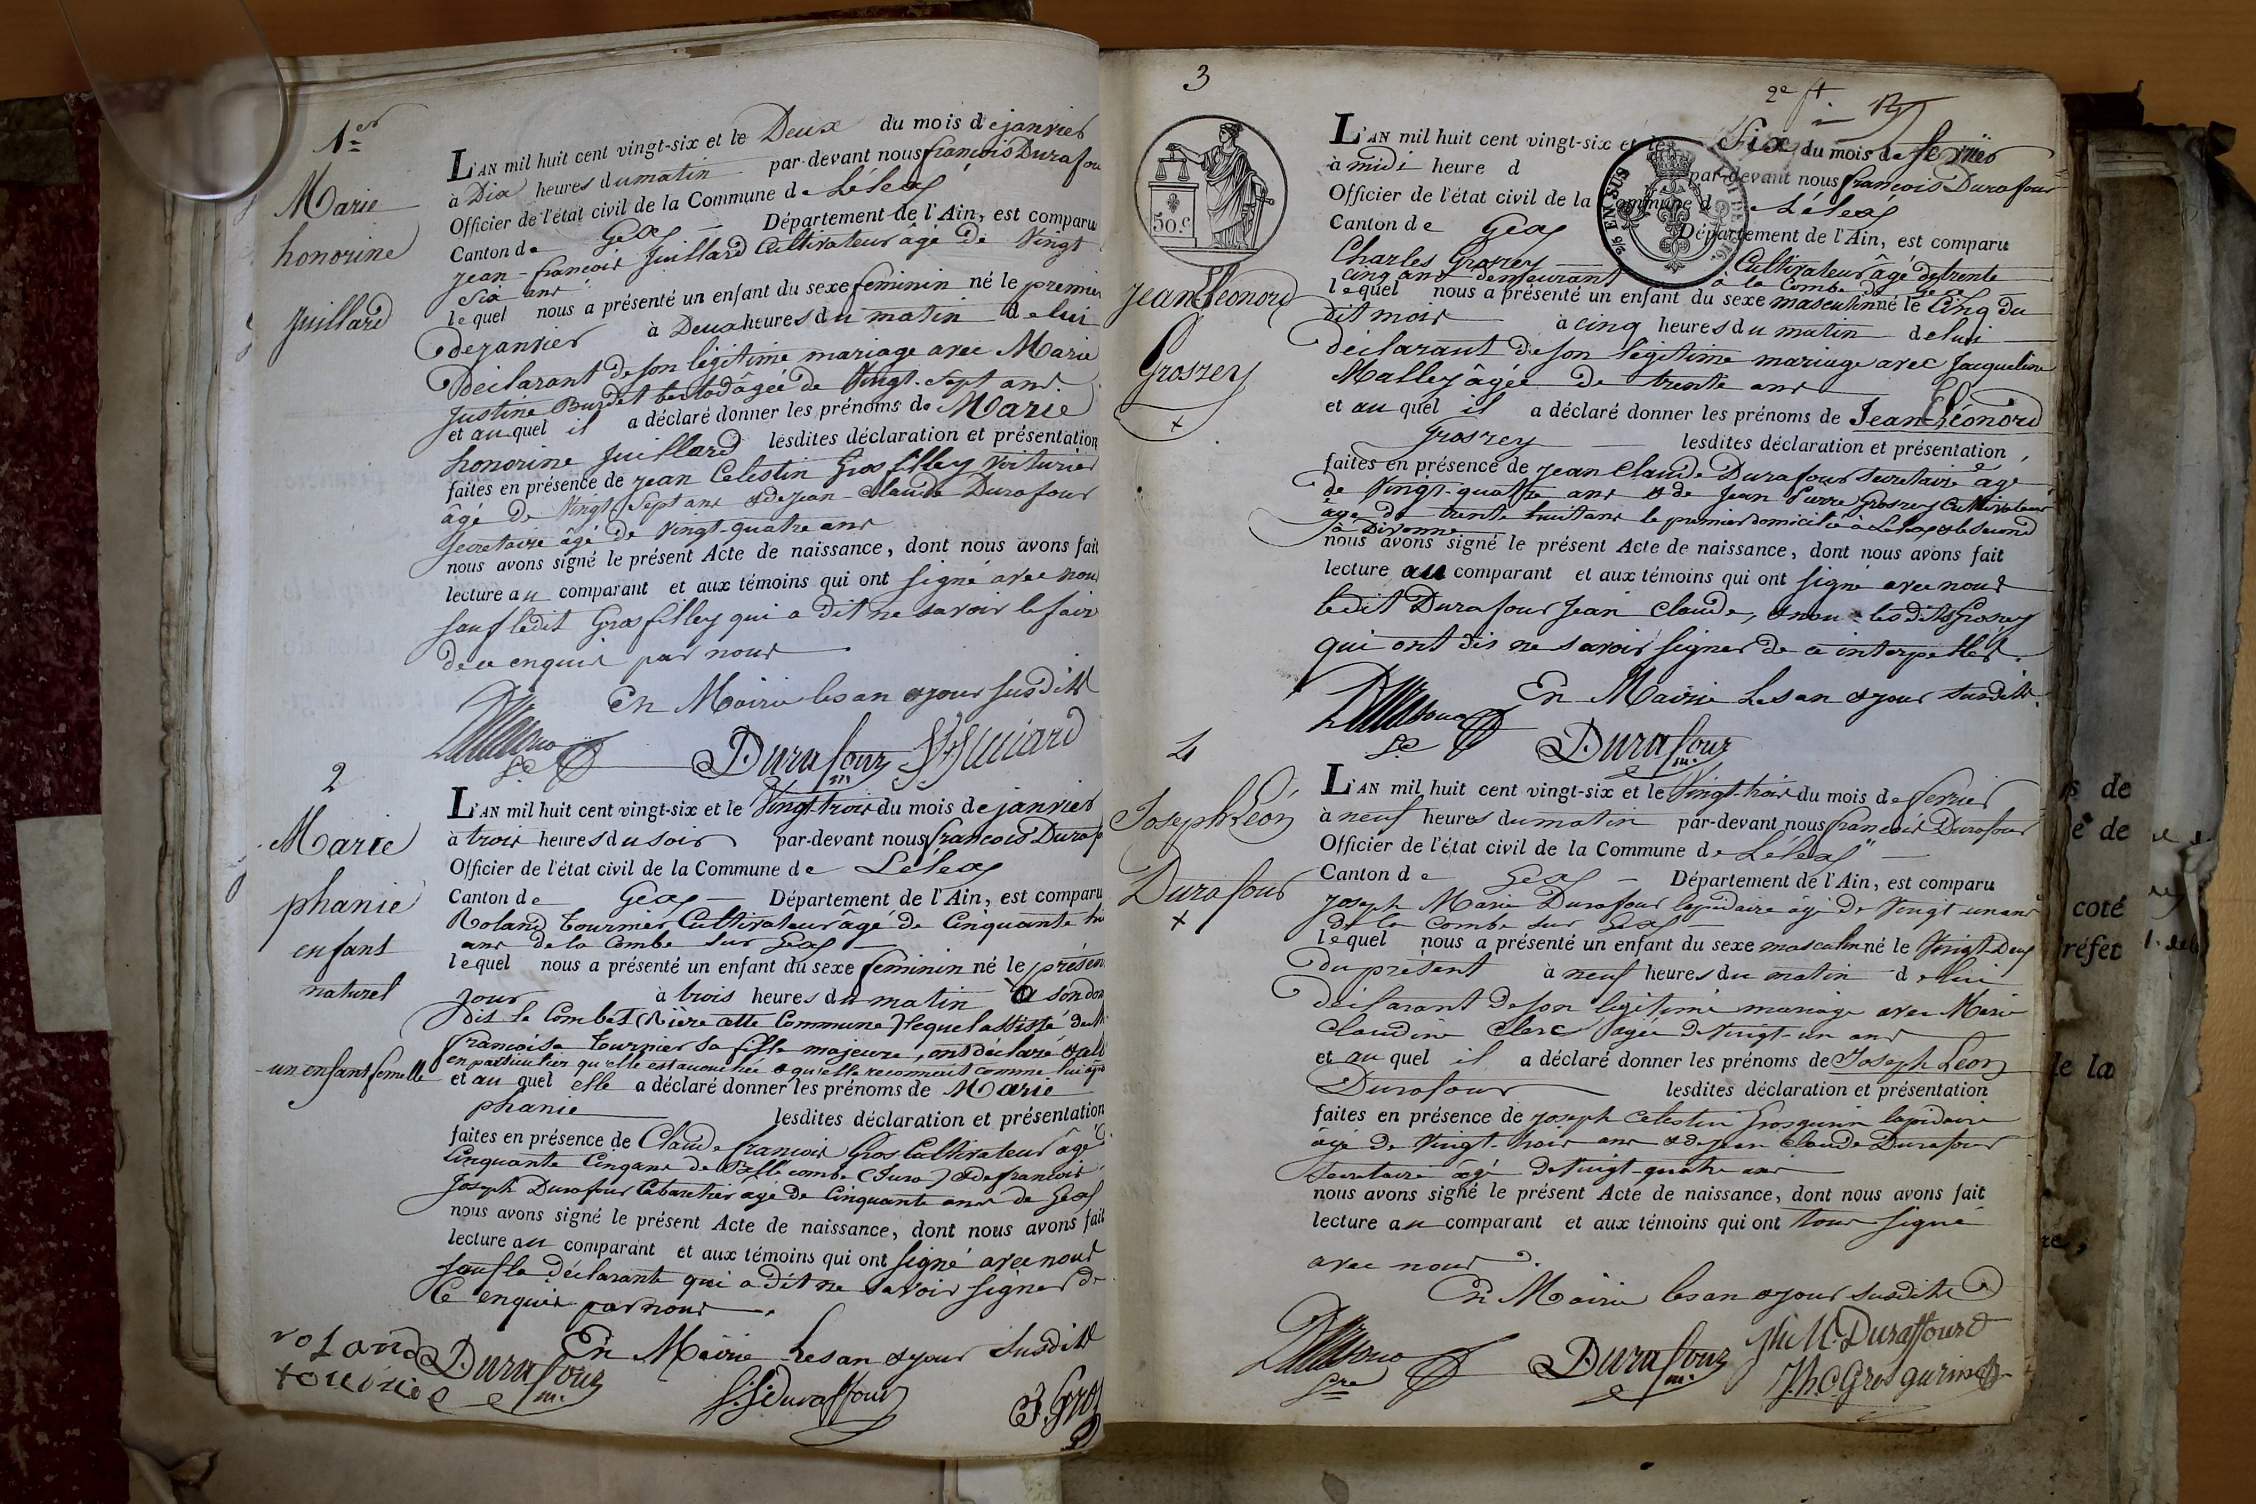 1er
Marie
honorine
juillard
L'AN mil huit cent vingt-six et le Deux du mois de janvier
à Dix heures du matin par-devant nous françois Durafour
Officier de l'état civil de la Commune de Lélex
Canton de Gex Département de l'Ain, est comparu
jean-françois Juillard Cultivateur âgé de Vingt
Six ans
lequel nous a présenté un enfant du sexe feminin né le premier
de janvier à Deux heures du matin de lui
Déclarant de son légitime mariage avec Marie
Justine Burdet âgée de Vingt-Sept ans.
et au quel il a déclaré donner les prénoms de Marie
honorine Juillard lesdites déclaration et présentation
faites en présence de jean Célestin Gros filley Voiturier
âgé de Vingt Sept ans & de jean-Claude Durafour
Secretaire âgé de Vingt-quatre ans
nous avons signé le présent Acte de naissance, dont nous avons fait
lecture au comparant et aux témoins qui ont signé avec nous
sauf ledit Grosfilley qui a dit ne savoir le faire
de ce enquis par nous
En Mairie les an & jour susdits
Durafour
2
Marie
phanie
enfant
naturel
un enfant femelle
L'AN mil huit cent vingt-six et le Vingt-trois du mois de janvier
à trois heures du soir par-devant nous francois Duraf
Officier de l'état civil de la Commune de Lélex
Canton de Gex Département de l'Ain, est comparu
Roland Tournier Cultivateur âgé de Cinquante
ans de la Combe sur Gex
lequel nous a présenté un enfant du sexe feminin né le présent
jour à trois heures du matin à son dom
dit le Combet (Rière cette Commune) lequel assisté de
francoise Tournier sa fille majeure, ont déclaré &
en particulier qu'elle est accouchée & qu'elle reconnait comme lui
et au quel elle a déclaré donner les prénoms de Marie
phanie lesdites déclaration et présentation
faites en présence de Claude françois Gros Cultivateur âgé
Cinquante Cinq ans de Bellecombe (Jura) & de francois
Joseph Durafour Cabaretier âgé de Cinquante ans de Gex
nous avons signé le présent Acte de naissance, dont nous avons fait
lecture au comparant et aux témoins qui ont signé avec nous
sauf la déclarante qui a dit ne savoir signer de
Ce enquis par nous
En Mairie les an & jour susdits
roland
Durafour
3
50 c.
2/5 EN SUS
Jean-Léonord
Grosrey
L'AN mil huit cent vingt-six et le Six du mois de février
à midi heure d par-devant nous françois Durafour
Officier de l'état civil de la Commune de Lélex
Canton de Gex Département de l'Ain, est comparu
Charles Grosrey Cultivateur âgé de trente
cinq ans demeurant à la Combe de Gex
lequel nous a présenté un enfant du sexe masculin né le Cinq du
dit mois à cinq heures du matin de lui
déclarant de son légitime mariage avec Jacqueline
Malley âgée de trente ans
et au quel il a déclaré donner les prénoms de Jean Léonord
Grosrey lesdites déclaration et présentation
faites en présence de jean Claude Durafour Secretaire âgé
de Vingt-quatre ans & de Jean Pierre Grosrey Cultivateur
âgé de trente huit ans le premier domicilié à Lelex & le second
à Divonne
nous avons signé le présent Acte de naissance, dont nous avons fait
lecture au comparant et aux témoins qui ont signé avec nous
ledit Durafour Jean Claude, & non les dits Grosrey
qui ont dis ne savoir signer de ce interpellés.
En Mairie Les an & jour susdits.
Durafour
4
Joseph Léon
Durafour
L'AN mil huit cent vingt-six et le Vingt-trois du mois de fevrier
à neuf heures du matin par-devant nous françois Durafour
Officier de l'état civil de la Commune de Lélex
Canton de Gex Département de l'Ain, est comparu
joseph Marie Durafour lapidaire âgé de Vingt un ans
de la Combe sur Gex
lequel nous a présenté un enfant du sexe masculin né le Vingt-Deux
du présent à neuf heures du matin de lui
déclarant de son légitime mariage avec Marie
Claudine Clerc âgée de Vingt-un ans
et au quel il a déclaré donner les prénoms de Joseph Léon
Durafour lesdites déclaration et présentation
faites en présence de joseph Celestin Grosgurin lapidaire
âgé de Vingt-trois ans & de jean Claude Durafour
Secretaire âgé de Vingt-quatre ans
nous avons signé le présent Acte de naissance, dont nous avons fait
lecture au comparant et aux témoins qui ont tous signé
avec nous.
En Mairie les an & jour susdits
Durafour
Jh M. Duraffourd
Jh C Gros gurin
de
de
coté
réfet
de la